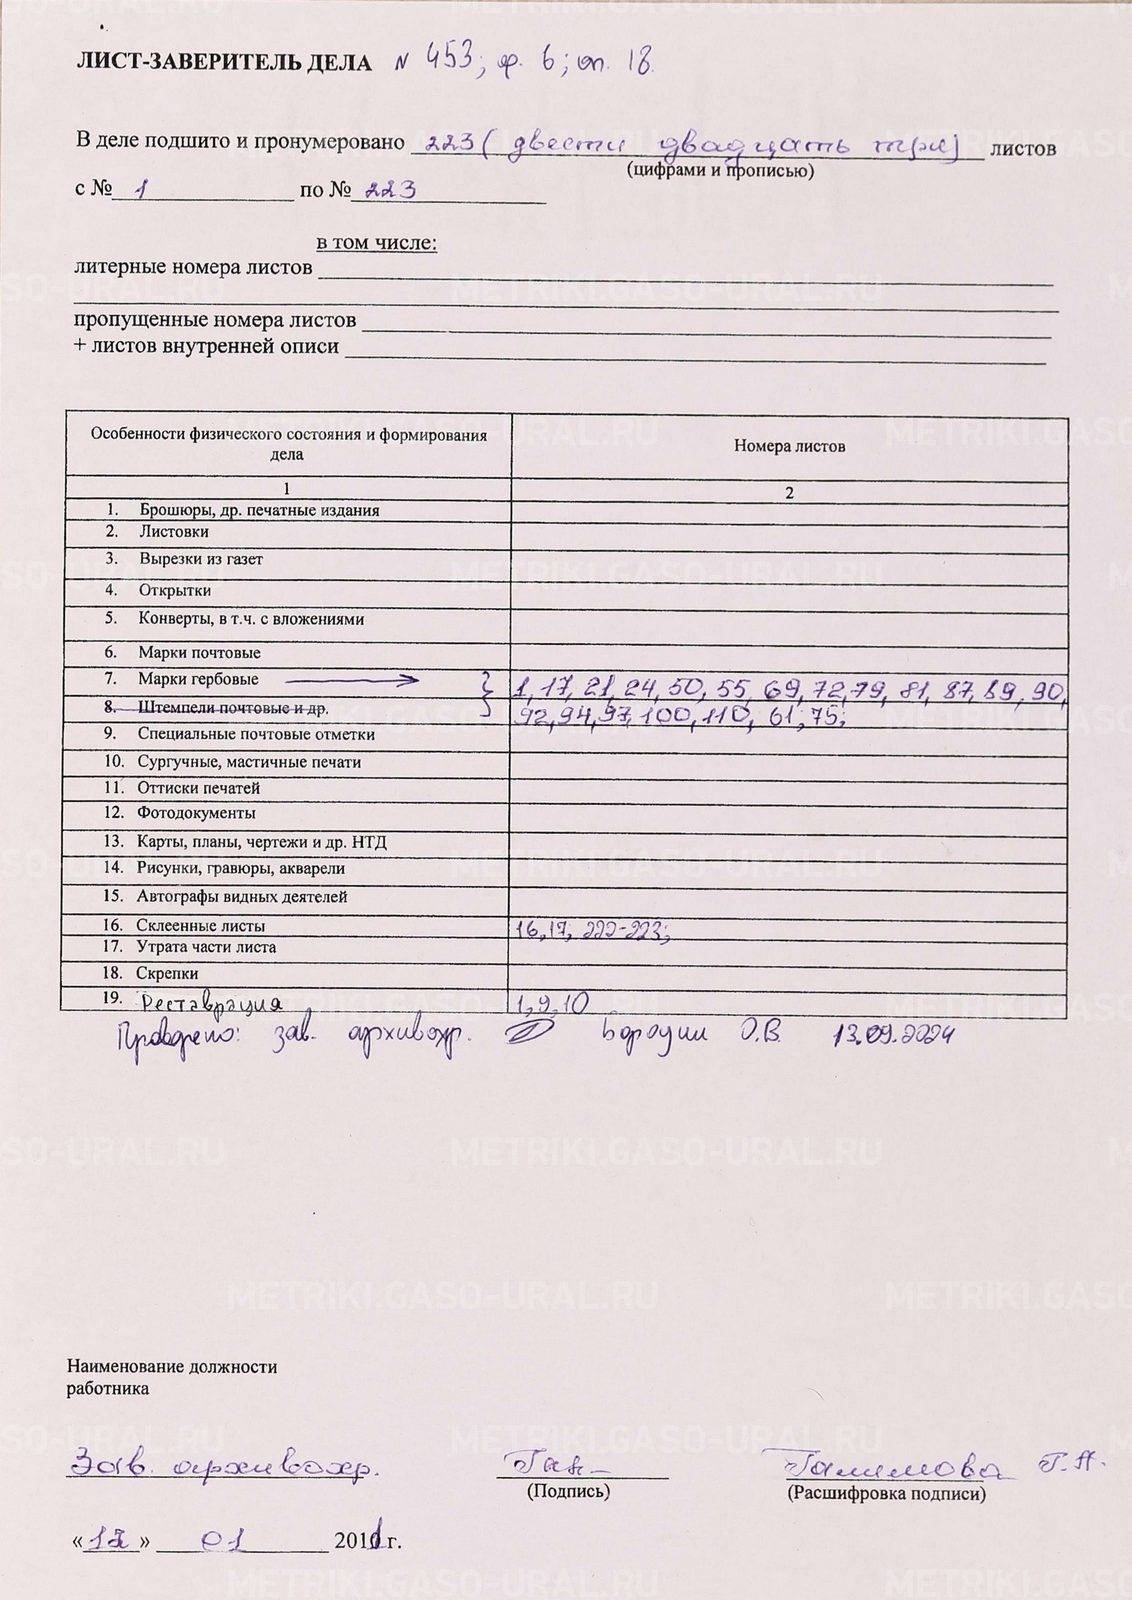 ЛИСТ-ЗАВЕРИТЕЛЬ ДЕЛА № 453; ф. 6; оп. 18.
В деле подшито и пронумеровано 223 (двести двадцать три) листов
(цифрами и прописью)
с № 1 по № 223
в том числе:
литерные номера листов
пропущенные номера листов
+ листов внутренней описи
Особенности физического состояния и формирования дела Номера листов
1 2
1. Брошюры, др. печатные издания
2. Листовки
3. Вырезки из газет
4. Открытки
5. Конверты, в т.ч. с вложениями
6. Марки почтовые
7. Марки гербовые 1, 17, 21, 24, 50, 55, 69, 72, 79, 81, 87, 89, 90,
8. Штемпели почтовые и др. 92, 94, 97, 100, 110, 61, 75;
9. Специальные почтовые отметки
10. Сургучные, мастичные печати
11. Оттиски печатей
12. Фотодокументы
13. Карты, планы, чертежи и др. НТД
14. Рисунки, гравюры, акварели
15. Автографы видных деятелей
16. Склеенные листы 16, 17; 222-223;
17. Утрата части листа
18. Скрепки
19. Реставрация 1, 9, 10
Проверено: зав. архивохр. Бородин О.В. 13.09.2024
Наименование должности
работника
Зав. архивохр. Гал Галимова Г.А.
(Подпись) (Расшифровка подписи)
«12» 01 2011 г.
METRIKI.GASO-URAL.RU